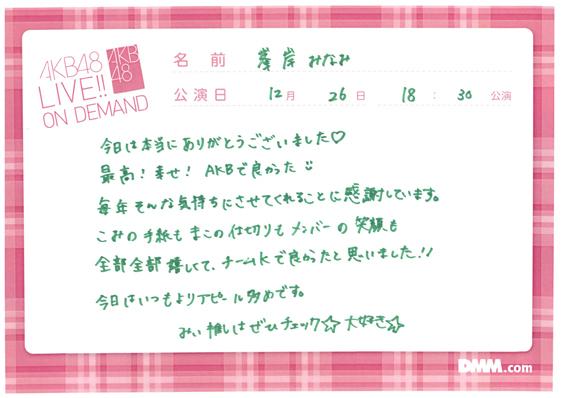 AKB48
LIVE!!
ON DEMAND
AKB
48
名 前 峯岸 みなみ
公演日 12月 26日 18 : 30 公演
今日は本当にありがとうございました♡
最高！幸せ！ AKBで良かった
毎年そんな気持ちにさせてくれることに感謝しています。
こみの手紙も まこの仕切りも メンバーの笑顔も
全部全部嬉しくて、チームKで良かったと思いました!!
今日はいつもよりアピール多めです。
みぃ推しはぜひチェック☆ 大好き☆
DMM.com